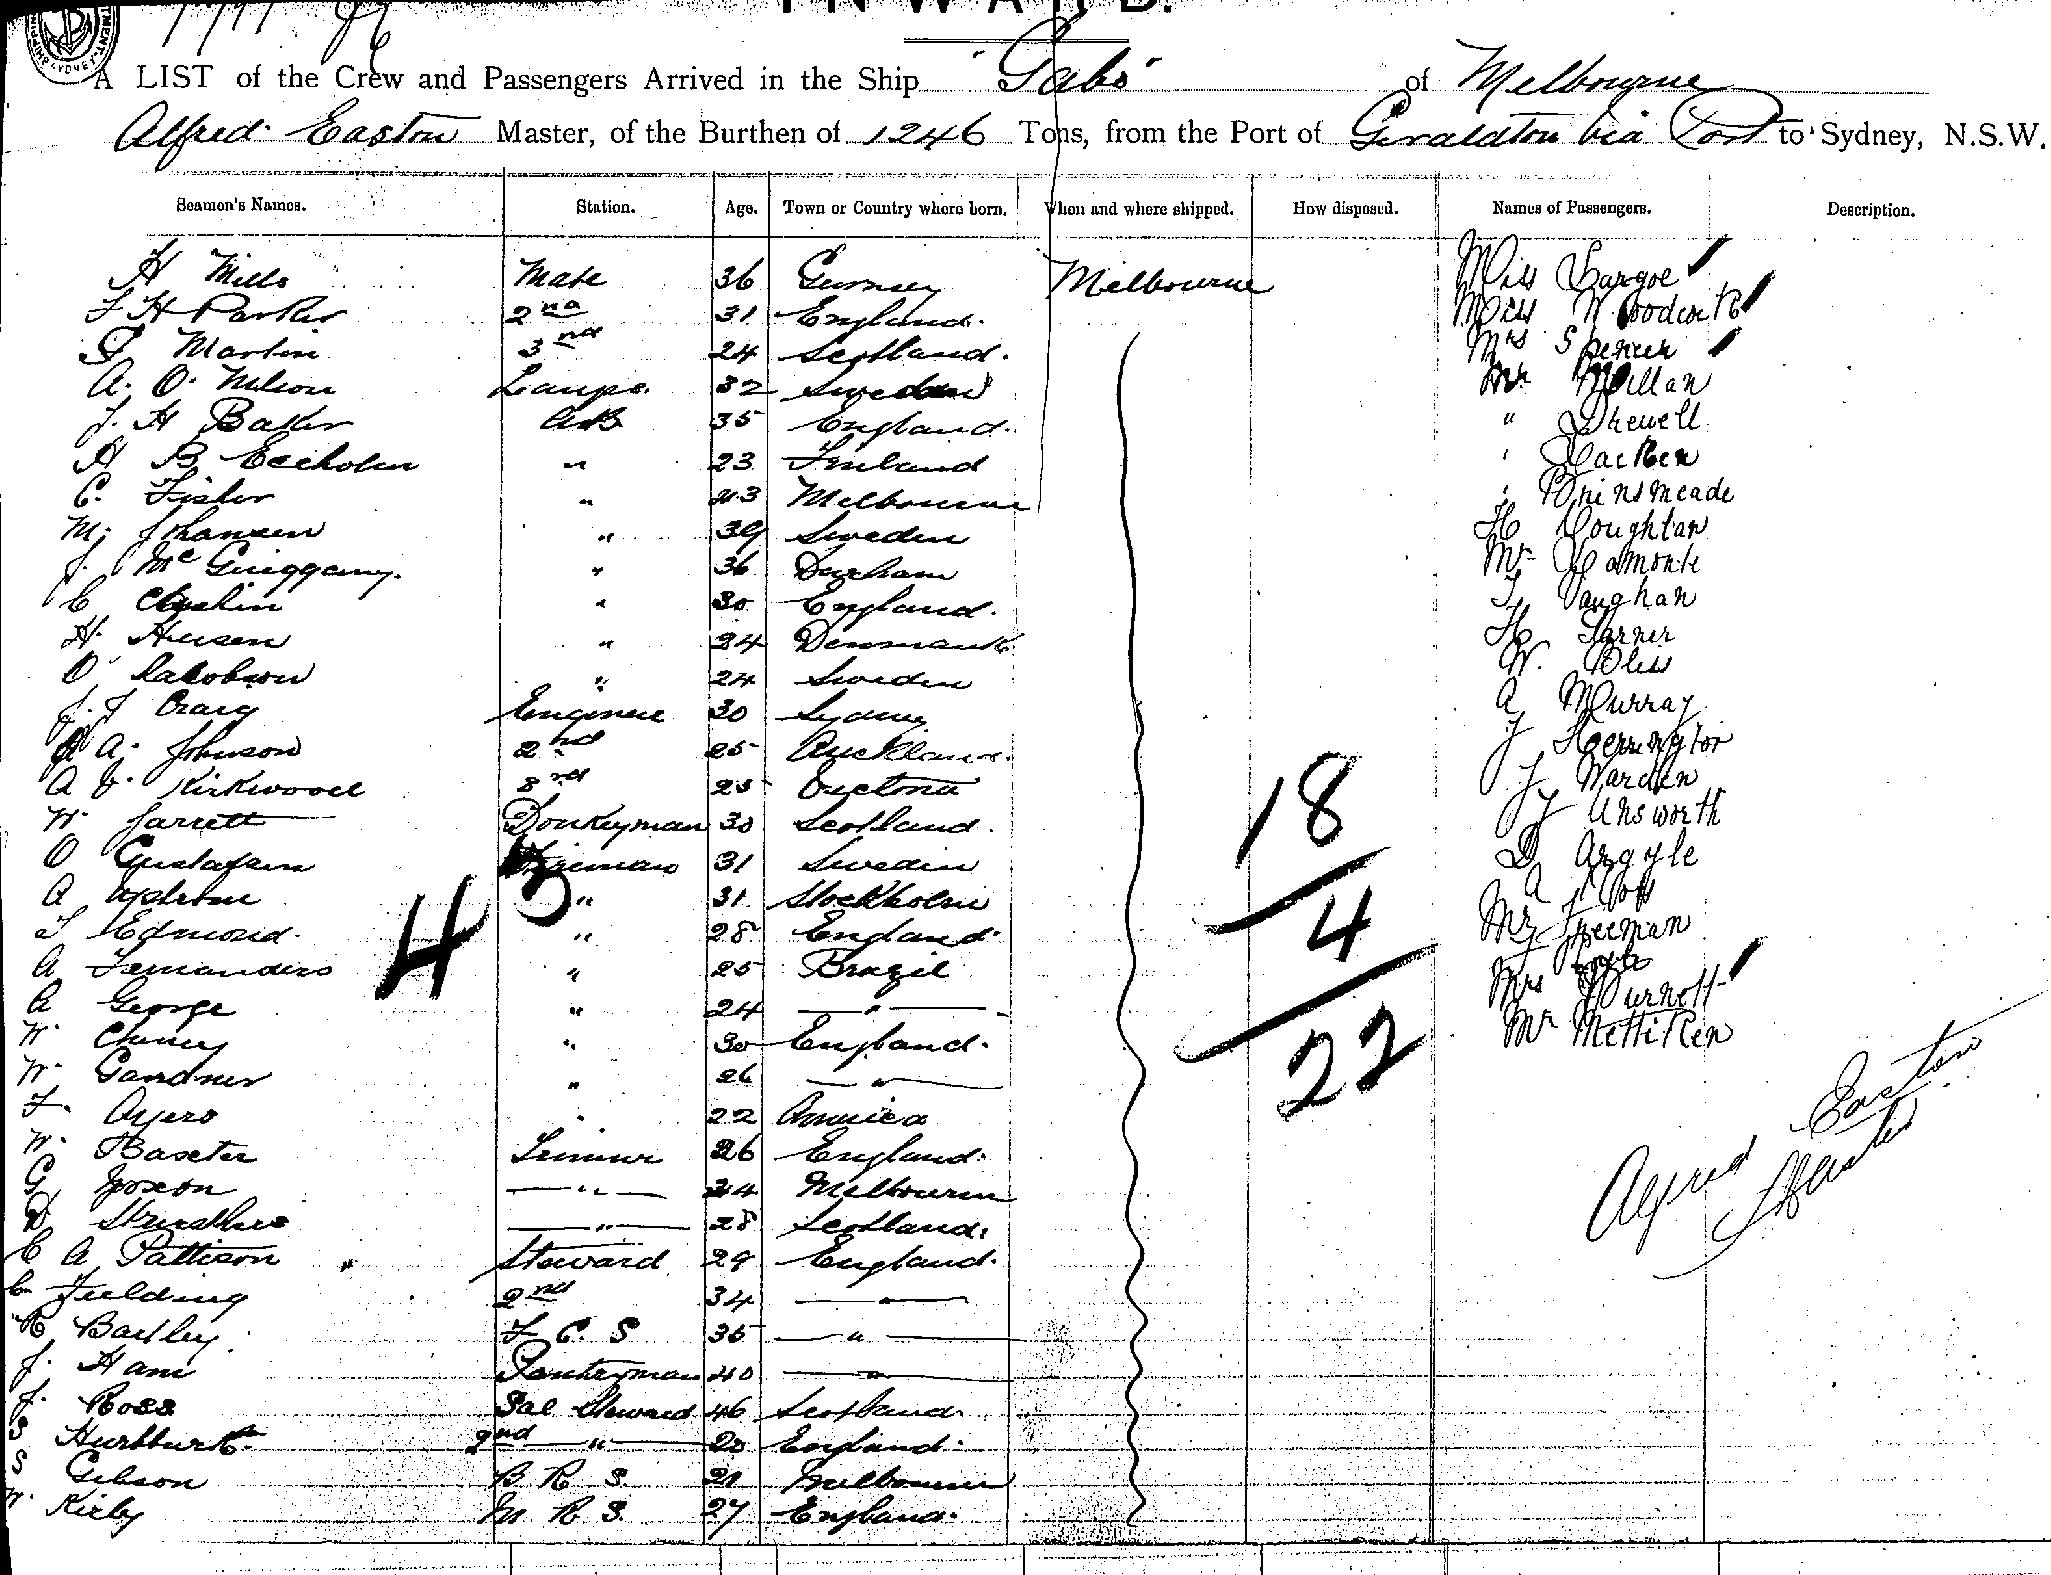 INWARD.
A LIST of the Crew and Passengers Arrived in the Ship "Gabo" of Melbourne
Alfred Easton Master, of the Burthen of 1246 Tons, from the Port of Geraldton via Port to Sydney, N.S.W.
Seamen's Names. Station. Age. Town or Country where born. When and where shipped. How disposed. Names of Passengers. Description.
H Mills Mate 36 Gurnsey Melbourne Miss
F H Parker 2nd 31 England. Miss Woodcock
G Martin 3rd 24 Scotland. Mrs Spencer
A. O. Nelson Lamps. 32 Sweden Mr Millan
J. H Baker AB 35 England. " Drewell
H B Eccholm " 23 Finland
C. Fisher " 43 Melbourne Brinsmeade
M. Johansen " 39 Sweden H Coughlan
J. Mc Guiggany. " 36 Durham Mr Lamonte
C " 30 England. T Vaughan
H. " 24 Denmark H
O Jacobson " 24 Sweden W. Bliss
J. J Craig Engineer 30 Sydney A Murray
A. Johnson 2nd 25 Auckland. J Herrington
A Kirkwood 3rd 25 Victoria J Warden
W. Jarrett Donkeyman 30 Scotland. J Unsworth
O Gustafson Fireman 31 Sweden D Argyle
A " 31 Stockholm A
F Edmond. " 28 England. Mr Freeman
A Fernandero " 25 Brazil
A George " 24 " Mrs Burnett
W. " 30 England. Mr Mettiken
W. Gardner " 26 "
F. Ayero " 22 America
W. Baxter Trimmer 26 England.
G Yoxon " 24 Melbourne
D Struthers " 28 Scotland.
C A Pattison Steward 29 England.
C Fielding 2nd 34 "
R Bartley F C S 35 "
J. Ham Pantryman 40 "
J. Ross Sal Steward 46 Scotland.
S Hurlburt 2nd " 20 England.
S Gibson B R S. 21 Melbourne
W. Kirby M R S. 27 England.
43
18
4
22
Alfred Easton
Master